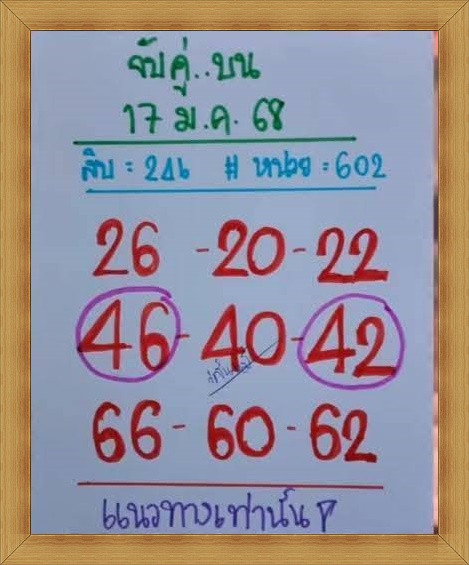 จับคู่..บน
17 ม.ค. 68
สิบ = 246 # หน่วย = 602
26 - 20 - 22
46 - 40 - 42
66 - 60 - 62
แนวทางเท่านั้น